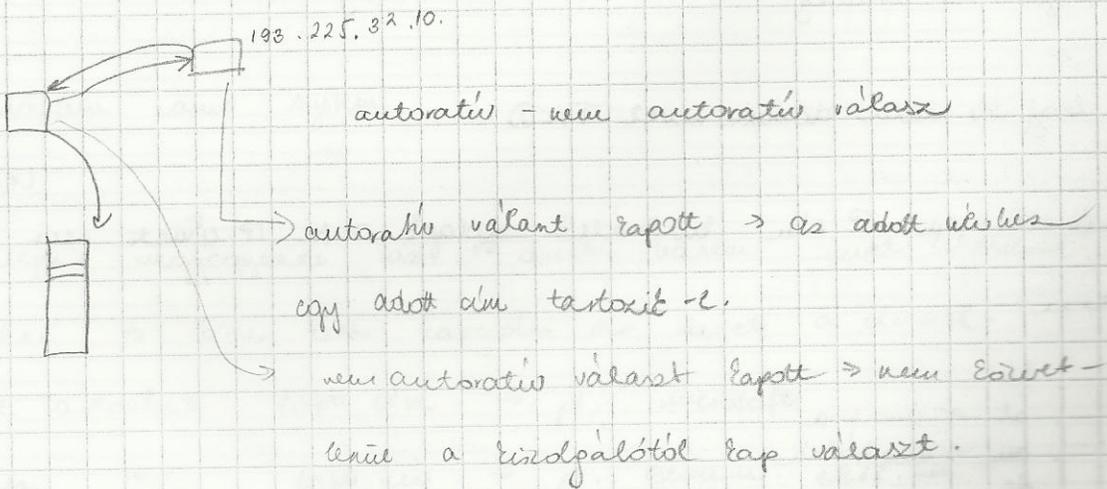 193.225.32.10.
autoratív - nem autoratív válasz
→ autoratív választ kapott → az adott névhez
egy adott cím tartozik-e.
→ nem autoratív választ kapott ⇒ nem közvet-
lenül a kiszolgálótól kap választ.